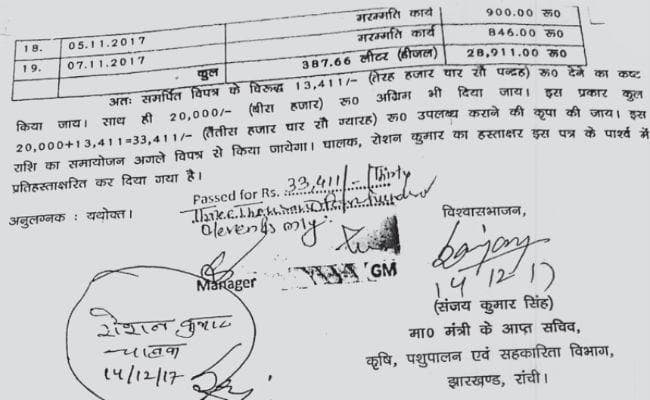 18. 05.11.2017 मरम्मति कार्य 900.00 रू0
19. 07.11.2017 मरम्मति कार्य 846.00 रू0
कुल 387.66 लीटर (डीजल) 28,911.00 रू0
अतः समर्पित विपत्र के विरूद्ध 13,411/- (तेरह हजार चार सौ पन्द्रह) रू0 देने का कष्ट
किया जाय। साथ ही 20,000/- (बीस हजार) रू0 अग्रिम भी दिया जाय। इस प्रकार कुल
20,000+13,411=33,411/- (तैंतीस हजार चार सौ ग्यारह) रू0 उपलब्ध कराने की कृपा की जाय। इस
राशि का समायोजन अगले विपत्र से किया जायेगा। चालक, रोशन कुमार का हस्ताक्षर इस पत्र के पार्श्व में
प्रतिहस्ताक्षरित कर दिया गया है।
Passed for Rs. 33,411/- (Thirty
Three thousand four hundred
eleven) only.
अनुलग्नक : यथोक्त।
विश्वासभाजन,
Manager
GM
14/12/17
(संजय कुमार सिंह)
मा0 मंत्री के आप्त सचिव,
कृषि, पशुपालन एवं सहकारिता विभाग,
झारखण्ड, रांची।
रोशन कुमार
चालक
14/12/17